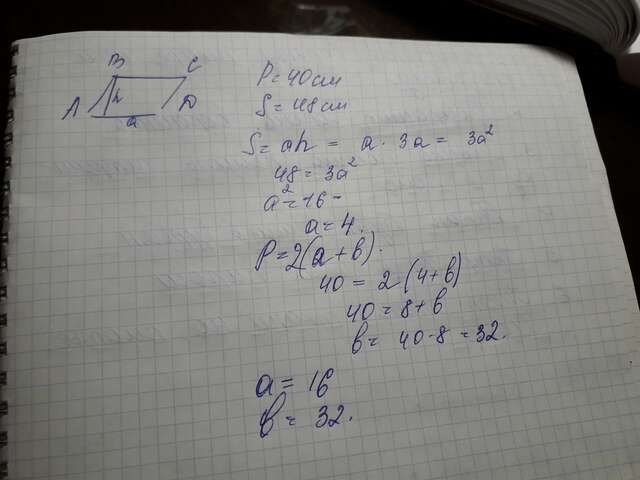 B C
A h D
a
P = 40 см
S = 48 см
S = ah = a · 3a = 3a²
48 = 3a²
a² = 16 -
a = 4.
P = 2(a + в).
40 = 2 (4 + в)
40 = 8 + в
в = 40 - 8 = 32.
a = 16
в = 32.